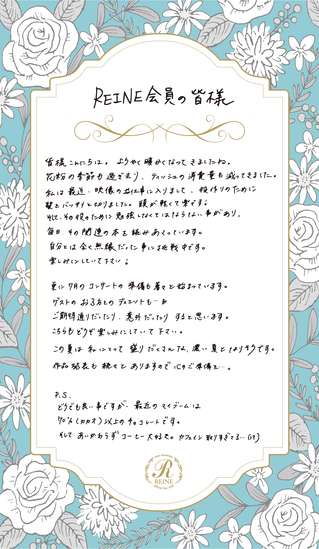 REINE会員の皆様
皆様こんにちは。ようやく暖かくなってきましたね。
花粉の季節も過ぎ去り、ティッシュの消費量も減ってきました。
私は最近、映像のお仕事に入りました。役作りのために
髪をバッサリと切りました。頭が軽くて楽です。
そして、その役のために勉強しなくてはならない事があり、
毎日、その関連の本を読みあさっています。
自分とは全く無縁だった事に挑戦中です。
楽しみにしていて下さい。
更に7月のコンサートの準備も着々と始まっています。
ゲストのお3方とのデュエットも…
ご期待通りだったり、意外だったりすると思います。
こちらもどうぞ楽しみにしていて下さい。
この夏は私にとって盛りだくさんな、濃い夏となりそうです。
作品発表も続々とありますので心のご準備を…。
P.S.
どうでも良い事ですが、最近のマイブームは
70%(カカオ)以上のチョコレートです。
そしてあいかわらずコーヒー大好き。カフェイン取りすぎてる…(笑)
R
REINE